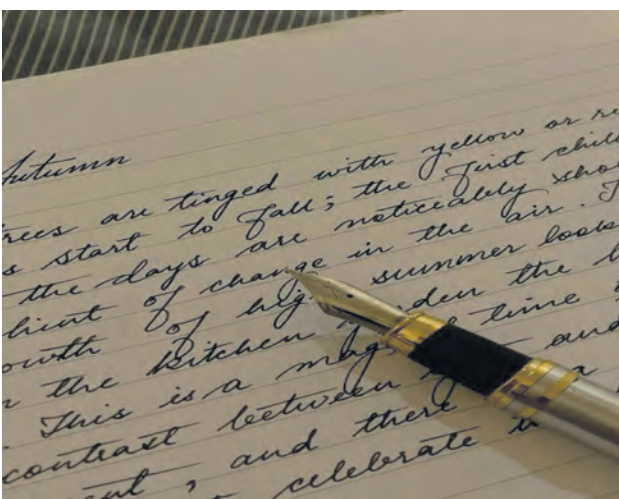 Autumn
trees are tinged with yellow or re
s start to fall; the first chill
the days are noticeably shor
hint of change in the air. T
owth of high summer looks
the kitchen garden the
. This is a magical time
contrast between and
, and there a
celebrate